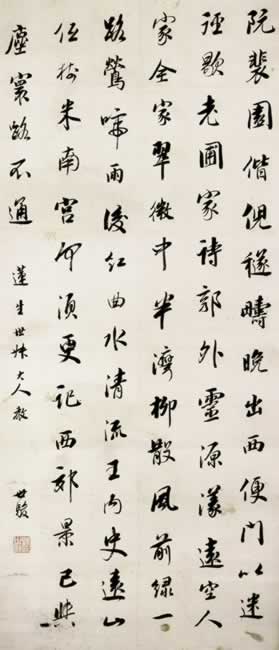 阮裴園偕倪穟疇晚出西便門以迷
歇老圃家詩郭外靈源漾遠空人
家全家翠微中半灣柳散風前綠一
路鶯啼雨後紅曲水清流王內史遠山
米南宮何須更記西郊景已與
塵寰路不通
蓮生世大人教
世駿